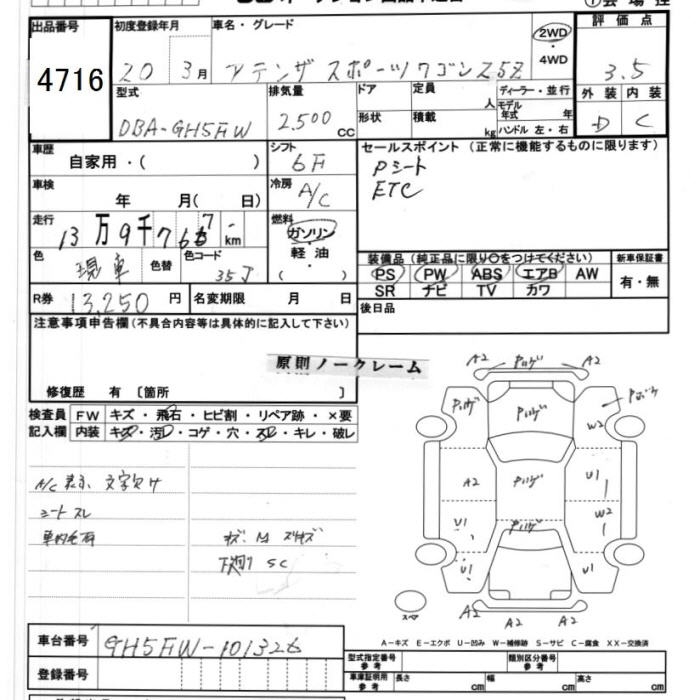 ① 会場控
出品番号 4716
初度登録年月 20 3月
車名・グレード アテンザ スポーツワゴン25Z
2WD ・ 4WD
評価点 3.5
外装 D 内装 C
型式 DBA-GH5FW
排気量 2.500 CC
ドア 形状
定員 人 積載 kg
ディーラー・並行
モデル年式 年
ハンドル 左・右
車歴 自家用・( )
シフト 6F
セールスポイント (正常に機能するものに限ります)
Pシート
ETC
車検 年 月( 日)
冷房 A/C
走行 13万9千767km
燃料 ガソリン・軽油・( )
色 現車 色替 色コード 35J
装備品 (純正品に限り○をつけてください)
PS PW ABS エアB AW
SR ナビ TV カワ
新車保証書 有・無
R券 13,250円 名変期限 月 日
後日品
注意事項申告欄 (不具合内容等は具体的に記入して下さい)
原則ノークレーム
修復歴 有 〔箇所 〕
検査員記入欄
FW キズ・飛石・ヒビ割・リペア跡・×要
内装 キズ・汚レ・コゲ・穴・スレ・キレ・破レ
A/C表示 文字欠け
シートスレ
車内毛有
キズ.M スリキズ
下廻り SC
A2 Pハゲ A2
Pハゲ Pハゲ Pハゲ
W2
A2 Pハゲ U1
W2
U1 Pハゲ
U1 U1
スペア
A2 A2 A2
A-キズ E-エクボ U-凹み W-補修跡 S-サビ C-腐食 XX-交換済
車台番号 GH5FW-101326
登録番号
型式指定番号 参考
類別区分番号 参考
車庫証明用 参考 長さ cm 幅 cm 高さ cm